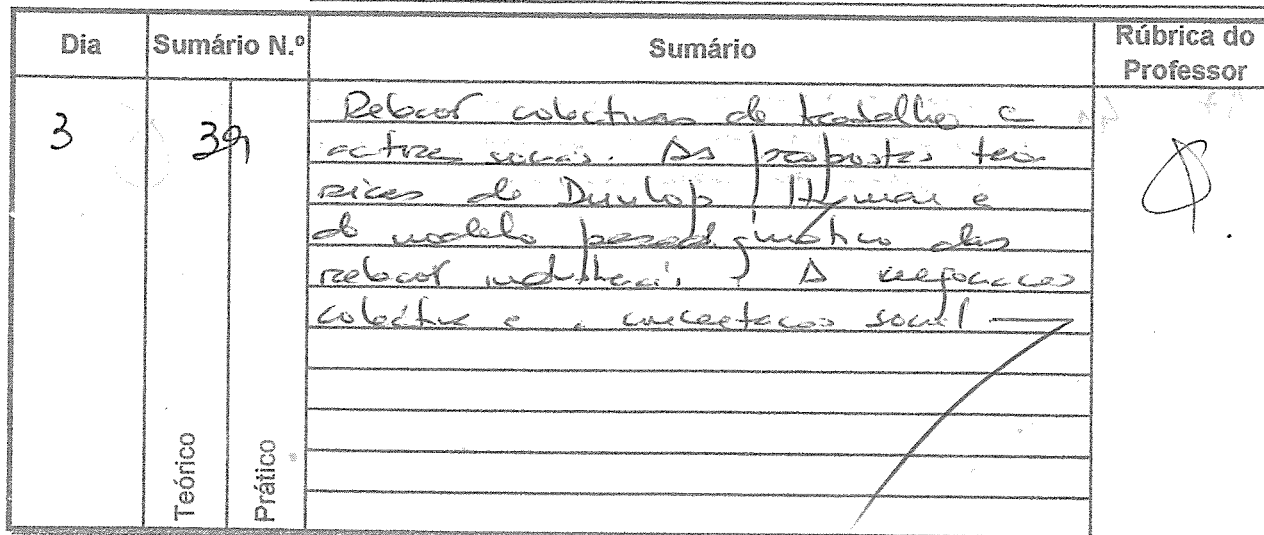 Dia Sumário N.º Sumário Rúbrica do Professor
3 39 Relações colectivas de trabalho e
actores sociais. As propostas teó
ricas de Dunlop, Hyman e
do modelo paradigmático das
relações industriais. A negociação
colectiva e a concertação social
Teórico
Prático